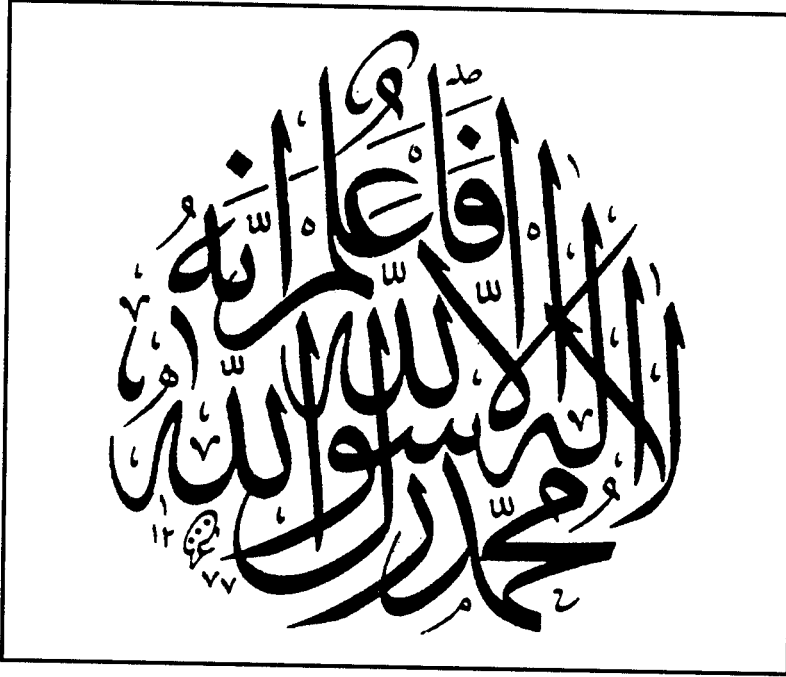 فَاعْلَمْ اَنَّهُ
لَا اِلٰهَ اِلَّا اللّٰهُ
مُحَمَّدٌ رَسُولُ اللّٰهِ
١٢ ٧٧